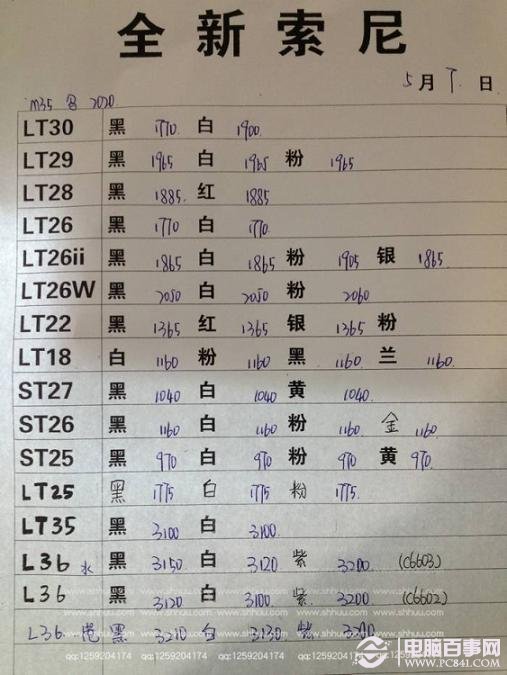 全新索尼
5月 日
m35 2020
LT30 黑 1770 白 1900
LT29 黑 1965 白 1965 粉 1965
LT28 黑 1885 红 1885
LT26 黑 1770 白 1770
LT26ii 黑 1865 白 1865 粉 1905 银 1865
LT26W 黑 2050 白 2050 粉 2060
LT22 黑 1365 红 1365 银 1365 粉
LT18 白 1160 粉 1160 黑 1160 兰 1160
ST27 黑 1040 白 1040 黄 1040
ST26 黑 1160 白 1160 粉 1160 金 1160
ST25 黑 970 白 970 粉 970 黄 970
LT25 黑 1775 白 1775 粉 1775
LT35 黑 3100 白 3100
L36 水 黑 3150 白 3120 紫 3200 (c6603)
L36 黑 3120 白 3100 紫 3200 (c6602)
www.shhuu.com www.shhuu.com www.shhuu.com
L36 黑 3210 白 3130 紫
qq:1259204174 qq:1259204174 qq:1259204174
电脑百事网
WWW.PC841.COM